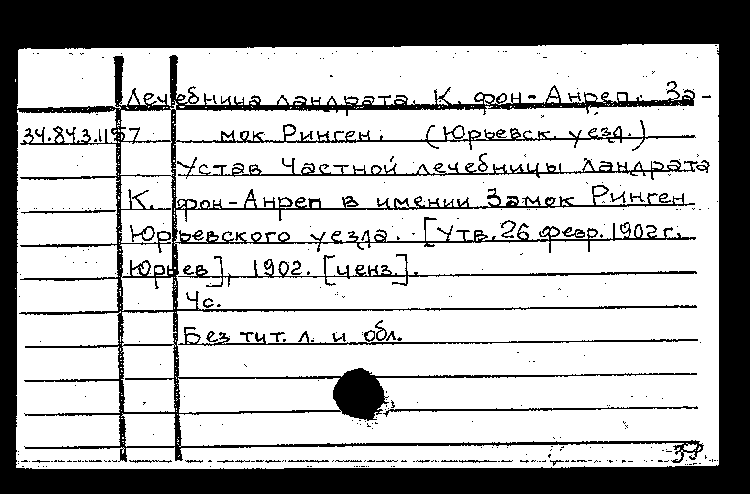 Лечебница ландрата К. фон-Анреп. За-
34.84.3.1157 мок Ринген. (Юрьевск. уезд.)
Устав Частной лечебницы Ландрата
К. фон-Анреп в имении Замок Ринген
Юрьевского уезда. [Утв. 26 февр. 1902 г.
Юрьев], 1902. [ценз.].
4с.
Без тит. л. и обл.